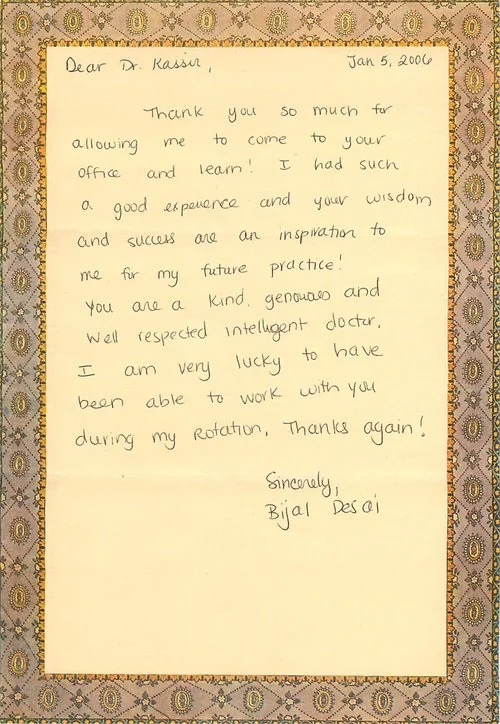 Dear Dr. Kassir, Jan 5, 2006
Thank you so much for
allowing me to come to your
office and learn! I had such
a good experience and your wisdom
and success are an inspiration to
me for my future practice!
You are a kind, generous and
well respected intelligent doctor.
I am very lucky to have
been able to work with you
during my rotation. Thanks again!
Sincerely,
Bijal Desai